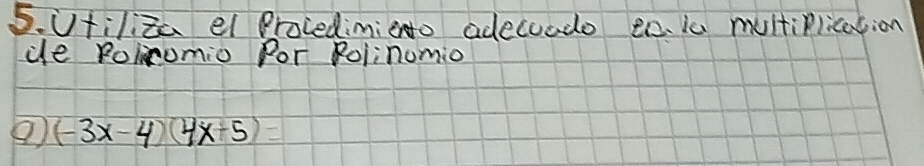 5. Utiliza el Procedimiento adecuado en la multiplicacion
de Polinomio Por Polinomio
a) (-3x-4)(4x+5)=